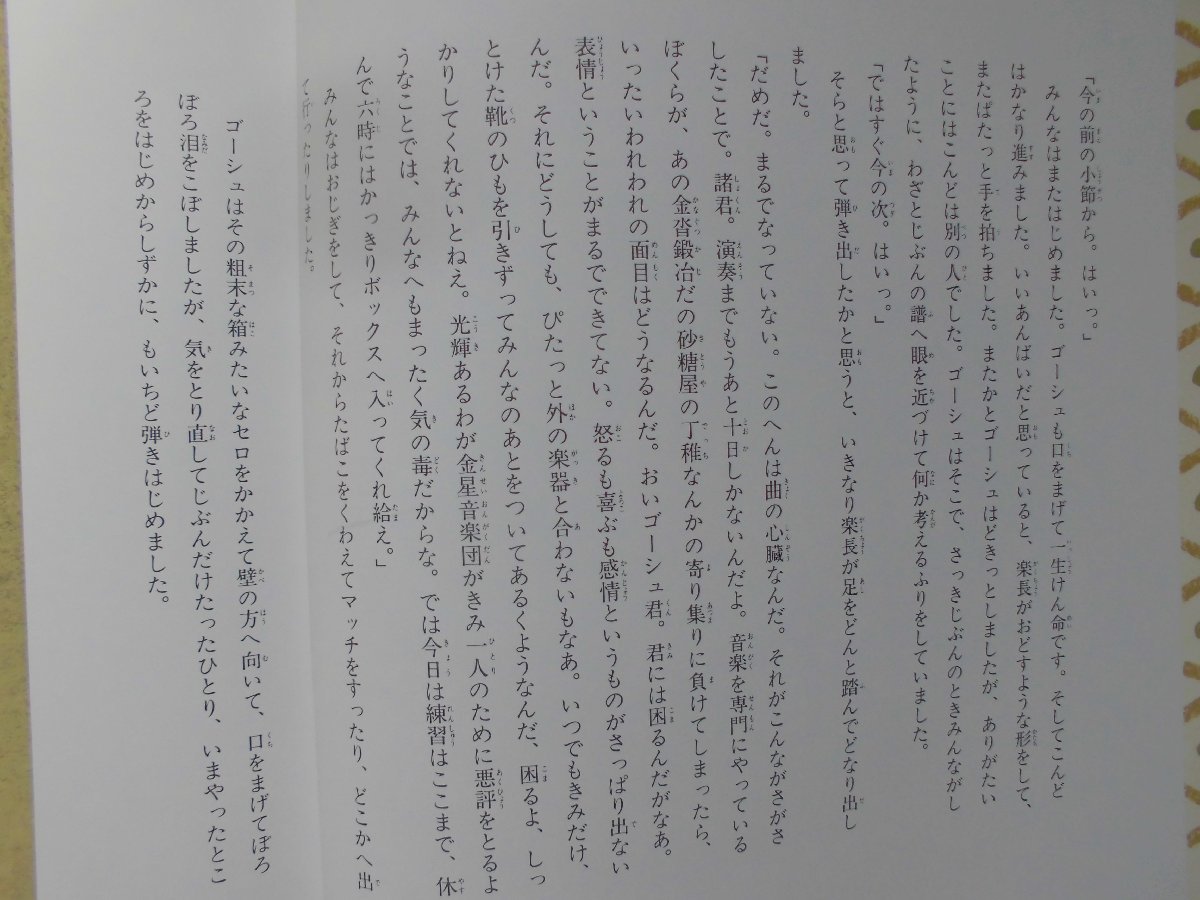 「今の前の小節から。はいっ。」
みんなはまたはじめました。ゴーシュも口をまげて一生けん命です。そしてこんど
はかなり進みました。いいあんばいだと思っていると、楽長がおどすような形をして、
またぱたっと手を拍ちました。またかとゴーシュはどきっとしましたが、ありがたい
ことにはこんどは別の人でした。ゴーシュはそこで、さっきじぶんのときみんながし
たように、わざとじぶんの譜へ眼を近づけて何か考えるふりをしていました。
「ではすぐ今の次。はいっ。」
そらと思って弾き出したかと思うと、いきなり楽長が足をどんと踏んでどなり出し
ました。
「だめだ。まるでなっていない。このへんは曲の心臓なんだ。それがこんながさがさ
したことで。諸君。演奏までもうあと十日しかないんだよ。音楽を専門にやっている
ぼくらが、あの金沓鍛冶だの砂糖屋の丁稚なんかの寄り集りに負けてしまったら、
いったいわれわれの面目はどうなるんだ。おいゴーシュ君。君には困るんだがなあ。
表情ということがまるでできてない。怒るも喜ぶも感情というものがさっぱり出ない
んだ。それにどうしても、ぴたっと外の楽器と合わないもなあ。いつでもきみだけ、
とけた靴のひもを引きずってみんなのあとをついてあるくようなんだ、困るよ、しっ
かりしてくれないとねえ。光輝あるわが金星音楽団がきみ一人のために悪評をとるよ
うなことでは、みんなへもまったく気の毒だからな。では今日は練習はここまで、休
んで六時にはかっきりボックスへ入ってくれ給え。」
みんなはおじぎをして、それからたばこをくわえてマッチをすったり、どこかへ出
て行ったりしました。
ゴーシュはその粗末な箱みたいなセロをかかえて壁の方へ向いて、口をまげてぼろ
ぼろ泪をこぼしましたが、気をとり直してじぶんだけたったひとり、いまやったとこ
ろをはじめからしずかに、もいちど弾きはじめました。